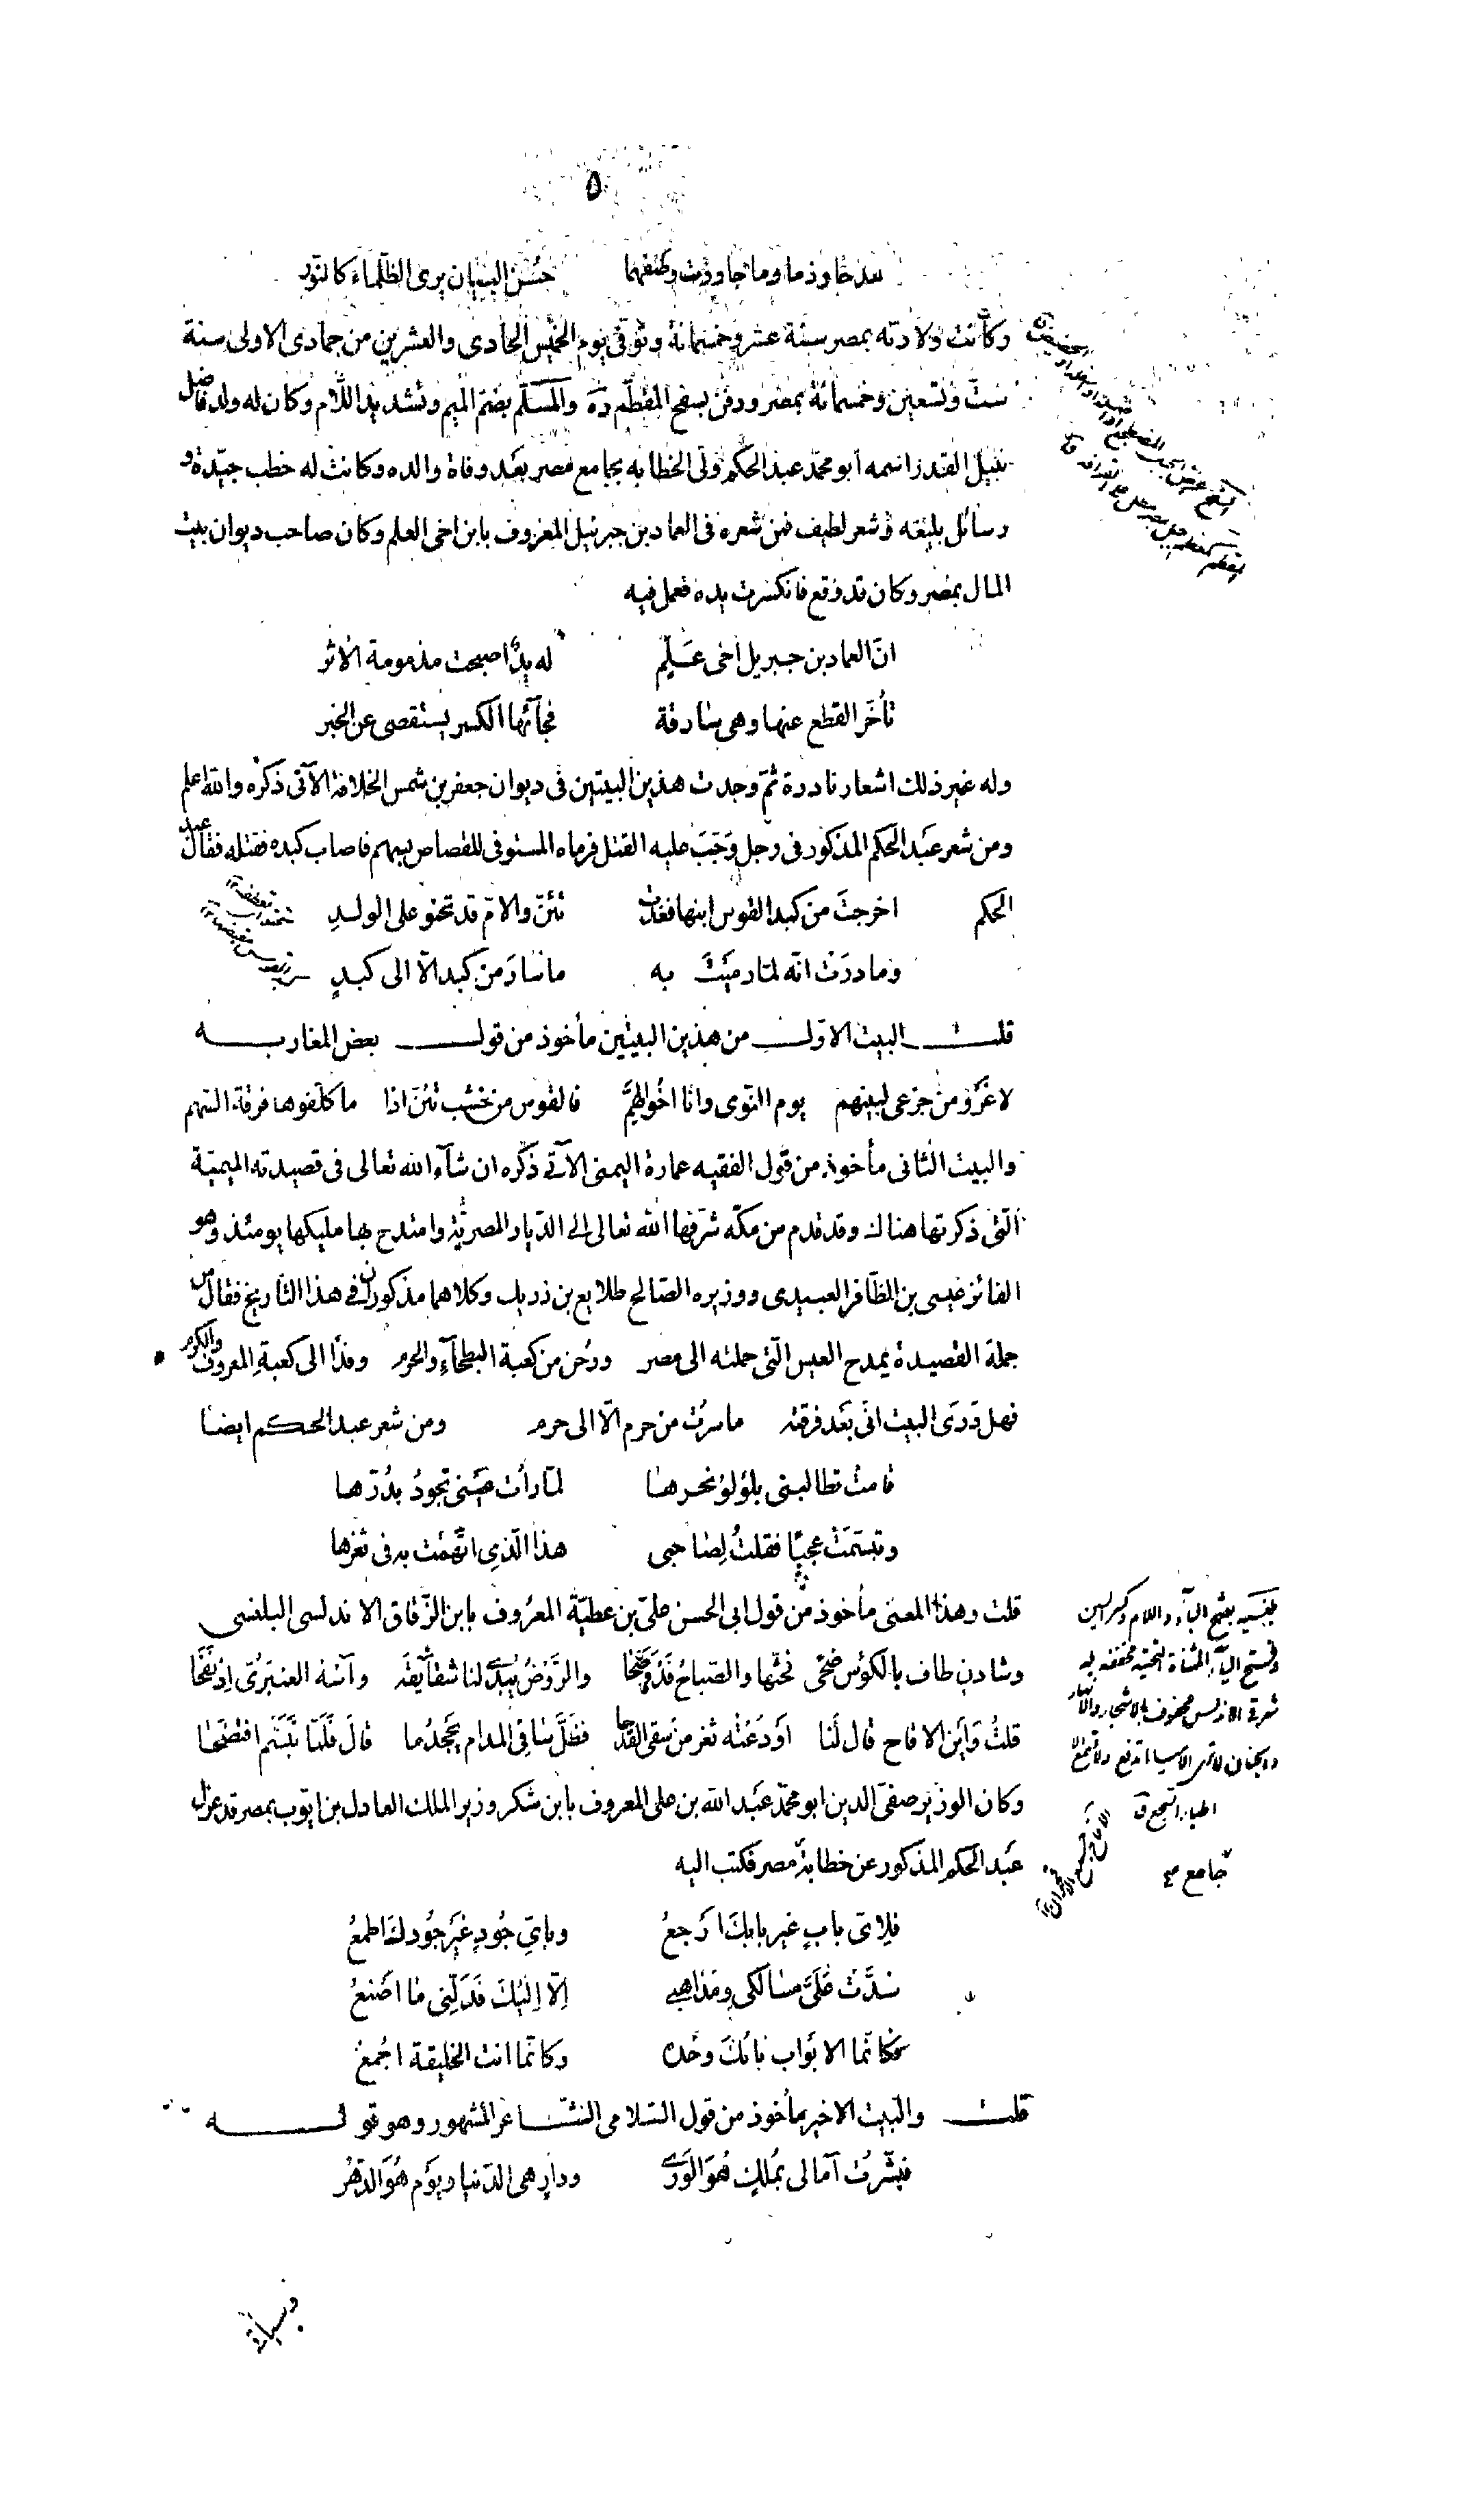 ٥
حسن البيان يرى الظلماء كالنور
وكانت ولادته بمصر سنة عشر وخمسمائة وتوفى يوم الخميس الحادى والعشرين من جمادى الاولى سنة
ست وتسعين وخمسمائة بمصر ودفن بسفح المقطم ره والمسلّم بضم الميم وتشديد اللام وكان له ولد فاضل
نبيل القدر اسمه ابو محمد عبد الحكم ولى الخطابه بجامع مصر بعد وفاة والده وكانت له خطب جيّدة و
رسائل بليغه و شعر لطيف فمن شعره فى العماد بن جبرئيل المعروف بابن اخى العلم وكان صاحب ديوان بيت
المال بمصر وكان قد وقع فانكسرت يده فعمل فيه
انّ العماد بن جبريل اخى عَلَمٍ له يدٌ اصبحت مذمومة الاثر
تأخّر القطع عنها وهى سارقة فجآئها الكسر يستقصى عن الخبر
وله غير ذلك اشعار نادرة ثمّ وجدت هذين البيتين فى ديوان جعفر بن شمس الخلافة الآتى ذكره والله اعلم
ومن شعر عبد الحكم المذكور فى رجل وَجَبَ عليه القتل فرماه المستوفى للقصاص بسهم فاصاب كبده فقتله فقال عبد
الحكم اخرجتَ من كبد القوس ابنها فغدت تئنّ والامّ قد تحنو على الولدِ
وما درَت انّه لمّا رميتَ به ما سارَ من كبد الّا الى كبدٍ
قلت البيت الاوّل من هذين البيتين مأخوذ من قول بعض المغاربه
لا غَرْوَ من جزعى لبينهم يوم النوى وانا اخُو الهمِّ فالقوس من خشب تئنّ اذا ما كلّفوها فرقة السّهم
والبيت الثانى مأخوذ من قول الفقيه عمارة اليمنى الآتى ذكره ان شآء الله تعالى فى قصيدته الميميّة
الّتى ذكرتها هناك وقد قدم من مكّه شرّفها الله تعالى الى الدّيار المصريّة وامتدح بها مليكها يومئذ وهو
الفائز عيسى بن الظّافر العبيدى ووزيره الصّالح طلايع بن رزيك وكلاهما مذكوران فى هذا التّاريخ فقال من
جملة القصيدة يمدح العيس الّتى حملته الى مصر ورُحن من كعبة البطحآءِ والحرم وفدًا الى كعبةِ المعروف والكرم
فهل دَرَى البيت انّى بَعد فرقته ما سرتُ من حرم الّا الى حرم ومن شعر عبد الحكم ايضا
قامت تطالبنى بلؤلؤ نحرها لمّا رأت عينى تجودُ بدُرّها
وتبسّمَتْ عجبًا فقلتُ لِصاحبى هذا الّذى اتّهمت به فى ثغرها
قلت وهذا المعنى مأخوذ من قول ابى الحسن علىّ بن عطيّة المعروف بابن الزّقاق الاندلسى البلنسى
وشادنٍ طاف بالكؤس ضحىً فحثّها والصّباحُ قَدْ وَضَحَا والرّوضُ يُبدى لنا شقآيقَه وآسُه العنبَرىُّ اِذْ نَفَحَا
قلتُ وَاَيْنَ الاقاح قال لَنا اَودَعْتُه ثغر من سقى القَدَحا فظَلَّ ساقى المدام يَجْحَدُ ما قالَ فَلَمّا تَبَسّم افتضَحَا
وكان الوزير صفىّ الدين ابو محمّد عبد الله بن على المعروف بابن شكر وزير الملك العادل بن ايّوب بمصر قد عزل
عَبد الحكم المذكور عن خطابة مصر فكتب اليه
فلِاَىّ بابٍ غير بابكَ اَرجعُ وباىّ جُودٍ غيرَ جُودك اطمعُ
سُدَّتْ عَلَىَّ مسالكى ومَذاهبى اِلّا اِلَيْكَ فَدَلّنِى ما اَصْنعُ
فكانّما الابواب بابُكَ وحده وكانّما انت الخليقة اجْمعُ
قلت والبيت الاخير مأخوذ من قول السّلامى الشاعر المشهور وهو قوله
فبشّرتُ آمالى بمُلكٍ هُوَ الوَرى ودارٍ هى الدّنيا ويَوم هُوَ الدّهْرُ
بلنسيه بفتح البآء واللام وكسر السين
وفتح اليآء المثناة التحتيه مخففه
جامع